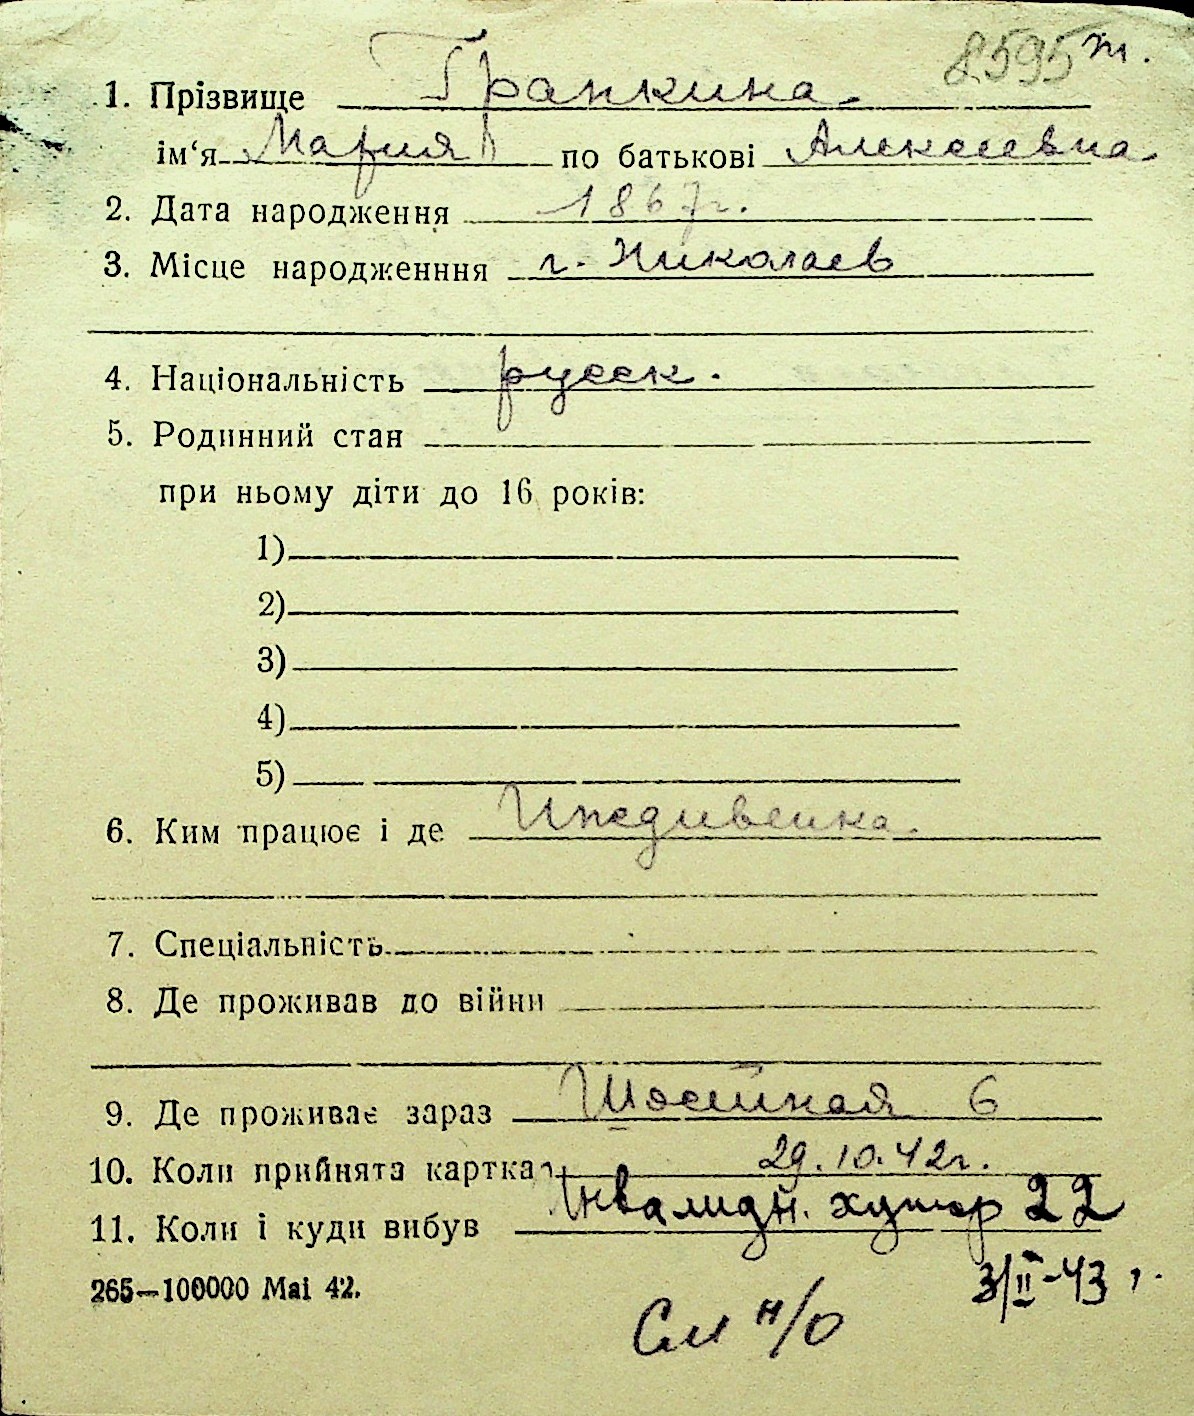 8595 т.
1. Прізвище Гранкина
ім‘я Мария по батькові Алексеевна
2. Дата народження 1867г.
3. Місце народженння г. Николаев
4. Національність русск.
5. Родинний стан
при ньому діти до 16 років:
1)
2)
3)
4)
5)
6. Ким працює і де Иждивенка.
7. Спеціальність
8. Де проживав до війни
9. Де проживає зараз 6
10. Коли прийнята картка 29.10.42г.
11. Коли і куди вибув Инвалидн. хутор 22
265—100000 Mai 42. 3/II-43 г.
См н/о